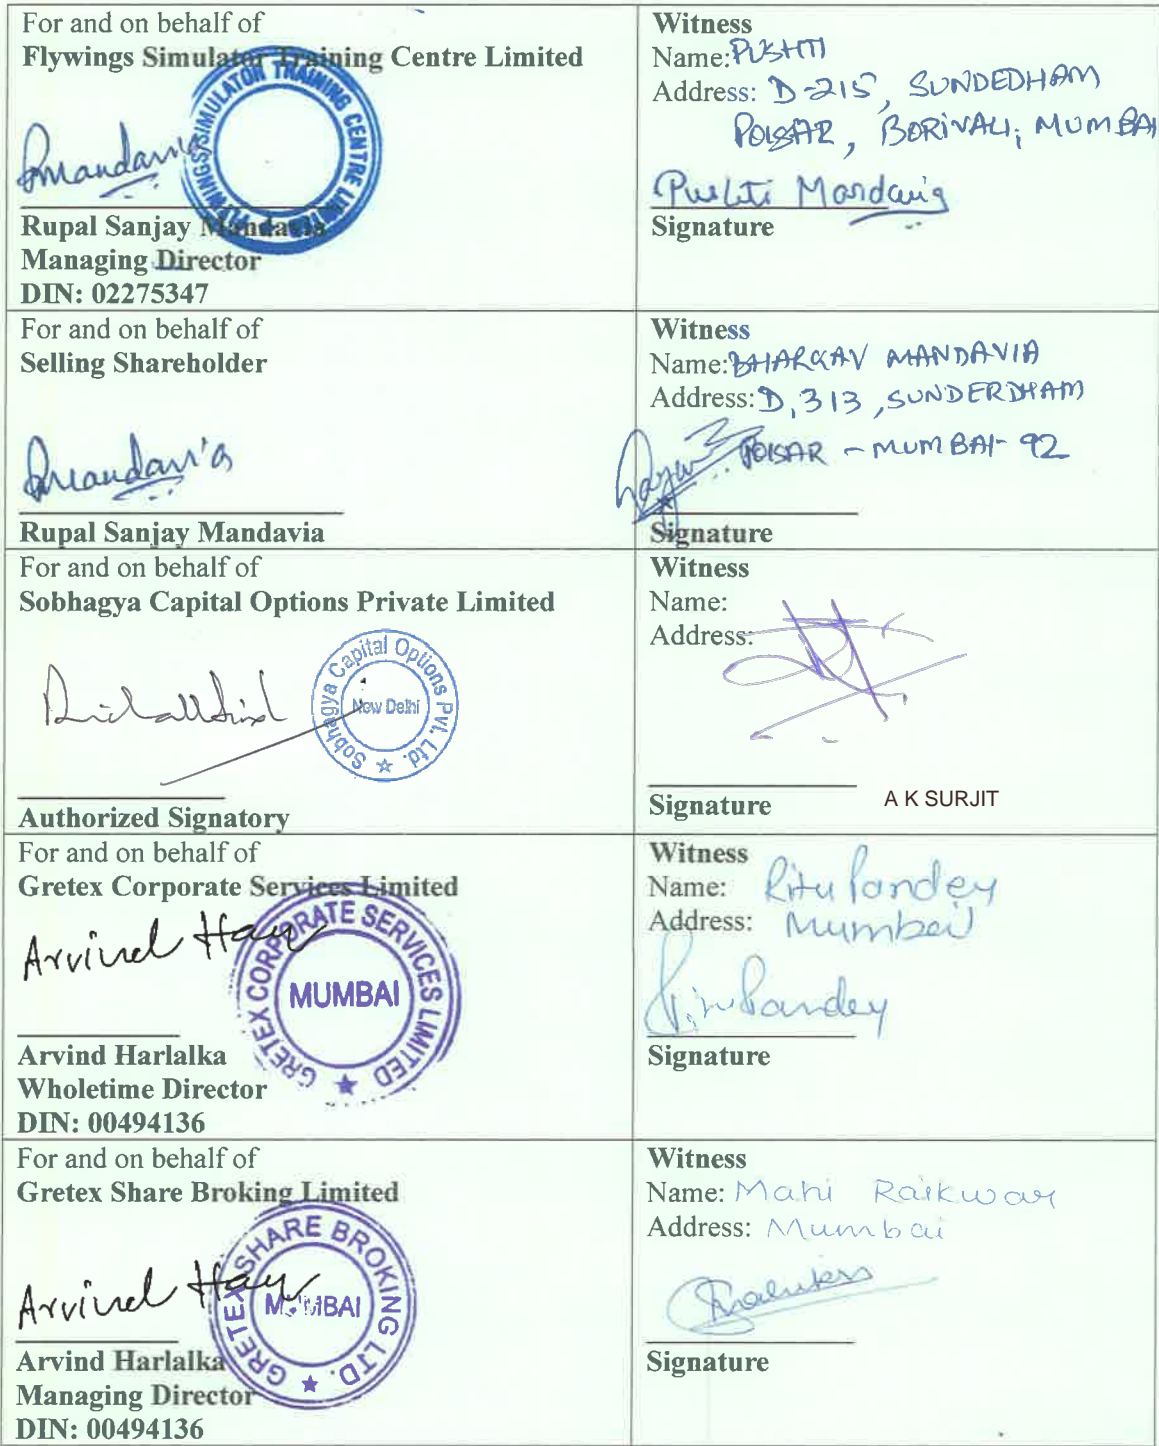 For and on behalf of
Flywings Simulator Training Centre Limited
FLYWINGS SIMULATOR TRAINING CENTRE LIMITED
Rmandavia
Rupal Sanjay Mandavia
Managing Director
DIN: 02275347
Witness
Name: PUSHTI
Address: D-215, SUNDEDHAM
POISAR, BORIVALI, MUMBAI
Pushti Mandavia
Signature
For and on behalf of
Selling Shareholder
Rmandavia
Rupal Sanjay Mandavia
Witness
Name: BHARGAV MANDAVIA
Address: D, 313, SUNDERDHAM
POISAR - MUMBAI- 92
Signature
For and on behalf of
Sobhagya Capital Options Private Limited
Sobhagya Capital Options Pvt. Ltd.
New Delhi
Authorized Signatory
Witness
Name:
Address:
Signature
A K SURJIT
For and on behalf of
Gretex Corporate Services Limited
Arvind Har
GRETEX CORPORATE SERVICES LIMITED
MUMBAI
Arvind Harlalka
Wholetime Director
DIN: 00494136
Witness
Name: Ritu Pandey
Address: Mumbai
Ritu Pandey
Signature
For and on behalf of
Gretex Share Broking Limited
Arvind Har
GRETEX SHARE BROKING LTD.
MUMBAI
Arvind Harlalka
Managing Director
DIN: 00494136
Witness
Name: Mahi Raikwar
Address: Mumbai
Signature